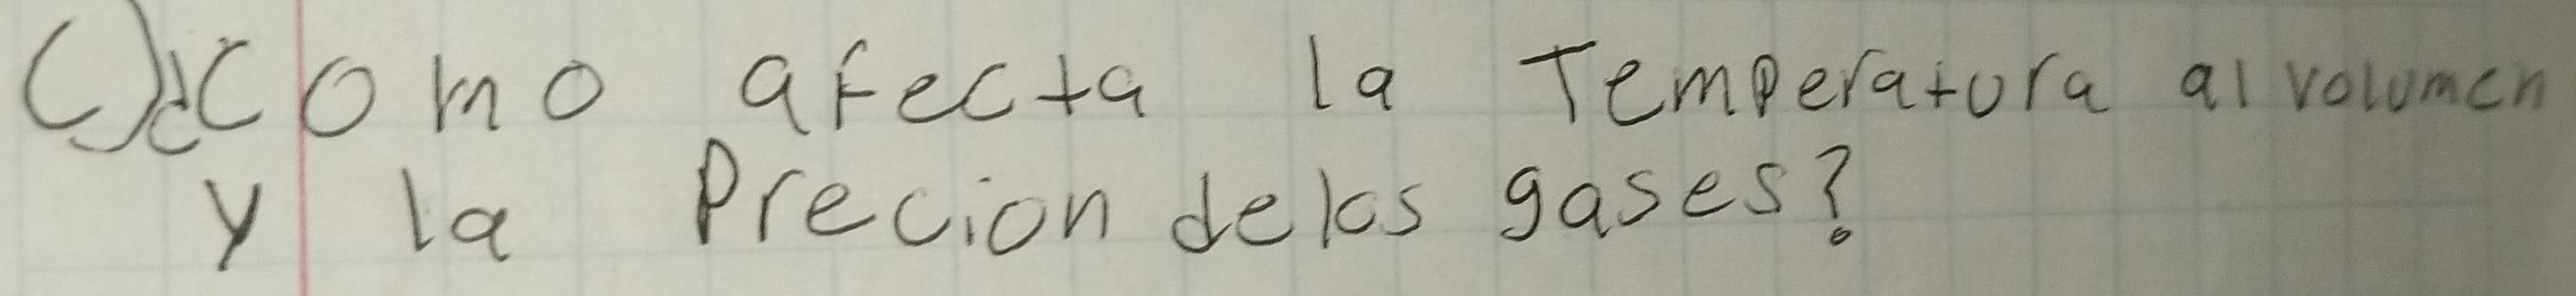 C)¿Como afecta la Temperatura al volumen
y la Precion delos gases?